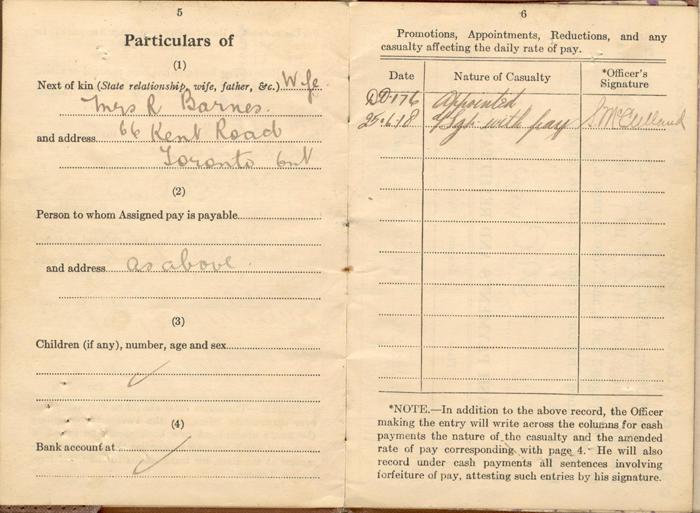 5
Particulars of
(1)
Next of kin (State relationship, wife, father, &c.) Wife
Mrs R Barnes.
and address 66 Kent Road
Toronto Ont
(2)
Person to whom Assigned pay is payable
and address as above.
(3)
Children (if any), number, age and sex
(4)
Bank account at
6
Promotions, Appointments, Reductions, and any
casualty affecting the daily rate of pay.
Date Nature of Casualty *Officer's
Signature
DO 176 Appointed
25.6.18 a/Sgt with pay S. McClelland
*NOTE.—In addition to the above record, the Officer
making the entry will write across the columns for cash
payments the nature of the casualty and the amended
rate of pay corresponding with page 4. He will also
record under cash payments all sentences involving
forfeiture of pay, attesting such entries by his signature.